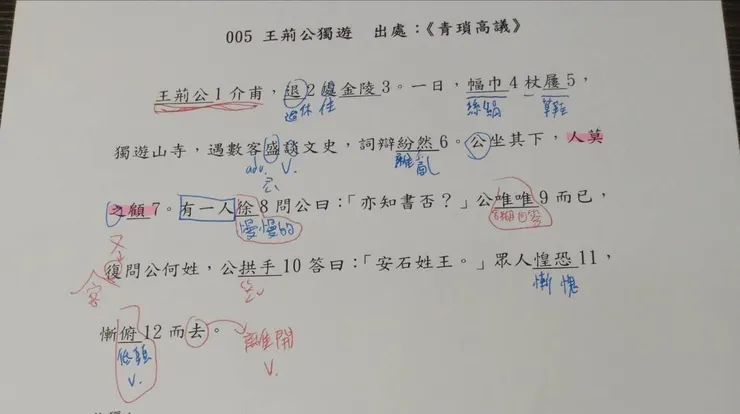 005 王荊公獨遊 出處：《青瑣高議》
王荊公1介甫，退2處金陵3。一日，幅巾4杖屨5，
退休 住 絲絹 草鞋
獨遊山寺，遇數客盛談文史，詞辯紛然6。公坐其下，人莫
adv. V. 雜亂
之顧7。有一人徐8問公曰：「亦知書否？」公唯唯9而已，
慢慢的 回答
又
復問公何姓，公拱手10答曰：「安石姓王。」眾人惶恐11，
客 慚愧
慚俯12而去。
低頭 離開
V. V.